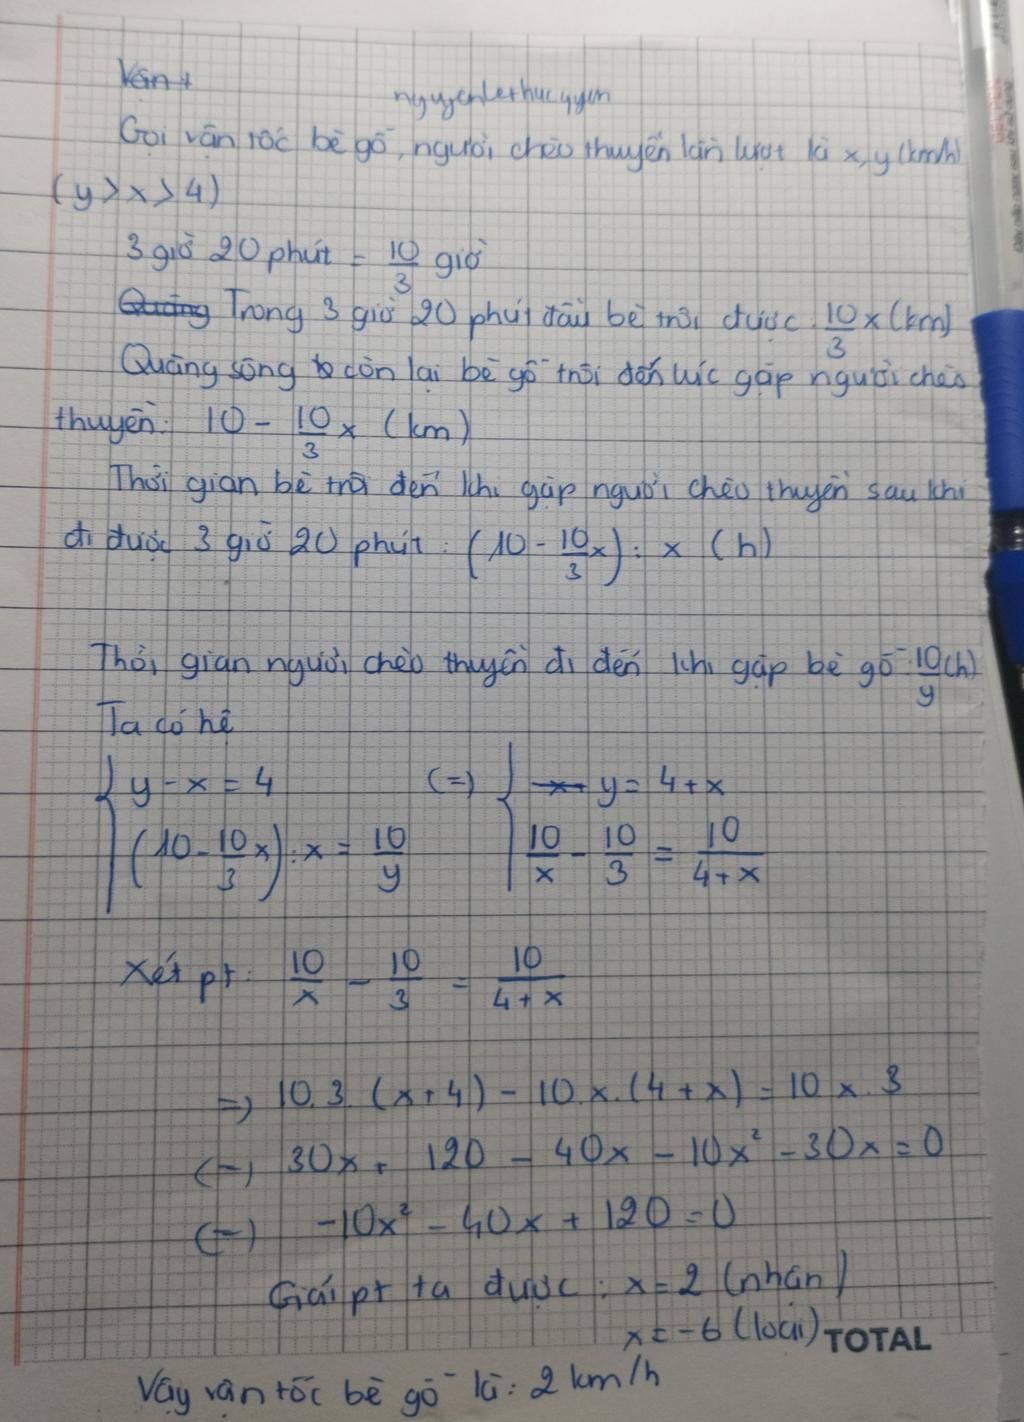 Vận t
nguyenlethucquyen
Gọi vận tốc bè gỗ, người chèo thuyền lần lượt là x, y (km/h)
(y > x > 4)
3 giờ 20 phút = 10/3 giờ
Quãng Trong 3 giờ 20 phút đầu bè trôi được 10/3 x (km)
Quãng sông còn lại bè gỗ trôi đến lúc gặp người chèo
thuyền: 10 - 10/3 x (km)
Thời gian bè trôi đến khi gặp người chèo thuyền sau khi
đi được 3 giờ 20 phút: (10 - 10/3 x) : x (h)
Thời gian người chèo thuyền đi đến khi gặp bè gỗ: 10/y (h)
Ta có hệ
{ y - x = 4 (=) { y = 4 + x
(10 - 10/3 x) : x = 10/y 10/x - 10/3 = 10/(4+x)
Xét pt: 10/x - 10/3 = 10/(4+x)
=> 10.3.(x+4) - 10.x.(4+x) = 10x.3
(=) 30x + 120 - 40x - 10x² - 30x = 0
(=) -10x² - 40x + 120 = 0
Giải pt ta được: x = 2 (nhận)
x = -6 (loại) TOTAL
Vậy vận tốc bè gỗ là: 2 km/h